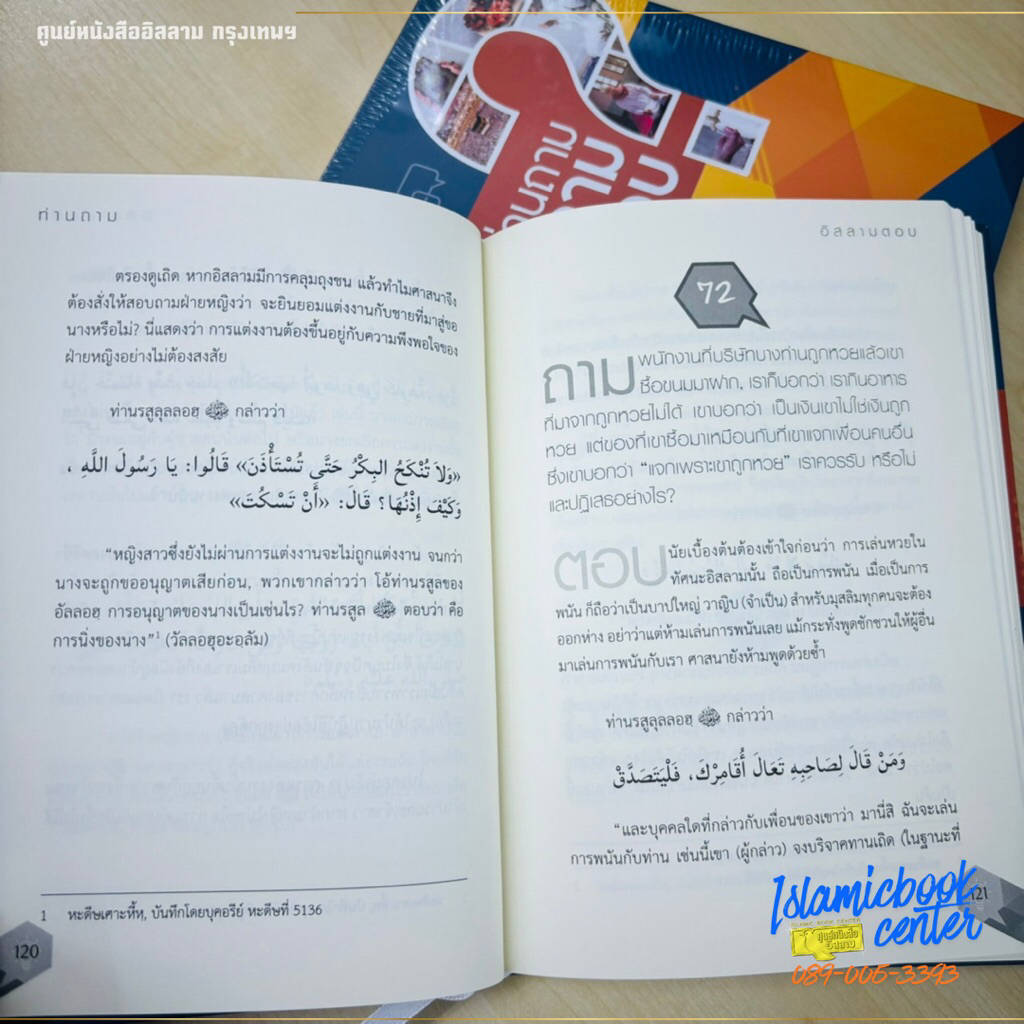 ศูนย์หนังสืออิสลาม กรุงเทพฯ
ท่านถาม
ตรองดูเถิด หากอิสลามมีการคลุมถุงชน แล้วทำไมศาสนาจึง
ต้องสั่งให้สอบถามฝ่ายหญิงว่า จะยินยอมแต่งงานกับชายที่มาสู่ขอ
นางหรือไม่? นี่แสดงว่า การแต่งงานต้องขึ้นอยู่กับความพึงพอใจของ
ฝ่ายหญิงอย่างไม่ต้องสงสัย
ท่านรสูลุลลอฮฺ ﷺ กล่าวว่า
«وَلاَ تُنْكَحُ البِكْرُ حَتَّى تُسْتَأْذَنَ» قَالُوا: يَا رَسُولَ اللَّهِ ،
وَكَيْفَ إِذْنُهَا؟ قَالَ: «أَنْ تَسْكُتَ»
“หญิงสาวซึ่งยังไม่ผ่านการแต่งงานจะไม่ถูกแต่งงาน จนกว่า
นางจะถูกขออนุญาตเสียก่อน, พวกเขากล่าวว่า โอ้ท่านรสูลของ
อัลลอฮฺ การอนุญาตของนางเป็นเช่นไร? ท่านรสูล ﷺ ตอบว่า คือ
การนิ่งของนาง”¹ (วัลลอฮุอะอฺลัม)
1 หะดีษเศาะหี้หฺ, บันทึกโดยบุคอรีย์ หะดีษที่ 5136
120
อิสลามตอบ
72
ถาม พนักงานที่บริษัทบางท่านถูกหวยแล้วเขา
ซื้อขนมมาฝาก, เราก็บอกว่า เรากินอาหาร
ที่มาจากถูกหวยไม่ได้ เขาบอกว่า เป็นเงินเขาไม่ใช่เงินถูก
หวย แต่ของที่เขาซื้อมาเหมือนกับที่เขาแจกเพื่อนคนอื่น
ซึ่งเขาบอกว่า “แจกเพราะเขาถูกหวย” เราควรรับ หรือไม่
และปฏิเสธอย่างไร?
ตอบ นัยเบื้องต้นต้องเข้าใจก่อนว่า การเล่นหวยใน
ทัศนะอิสลามนั้น ถือเป็นการพนัน เมื่อเป็นการ
พนัน ก็ถือว่าเป็นบาปใหญ่ วาญิบ (จำเป็น) สำหรับมุสลิมทุกคนจะต้อง
ออกห่าง อย่าว่าแต่ห้ามเล่นการพนันเลย แม้กระทั่งพูดชักชวนให้ผู้อื่น
มาเล่นการพนันกับเรา ศาสนายังห้ามพูดด้วยซ้ำ
ท่านรสูลุลลอฮฺ ﷺ กล่าวว่า
وَمَنْ قَالَ لِصَاحِبِهِ تَعَالَ أُقَامِرْكَ، فَلْيَتَصَدَّقْ
“และบุคคลใดที่กล่าวกับเพื่อนของเขาว่า มานี่สิ ฉันจะเล่น
การพนันกับท่าน เช่นนี้เขา (ผู้กล่าว) จงบริจาคทานเถิด (ในฐานะที่
121
Islamicbook
center
ISLAMIC BOOK CENTER
ศูนย์หนังสือ
อิสลาม
089-005-3393